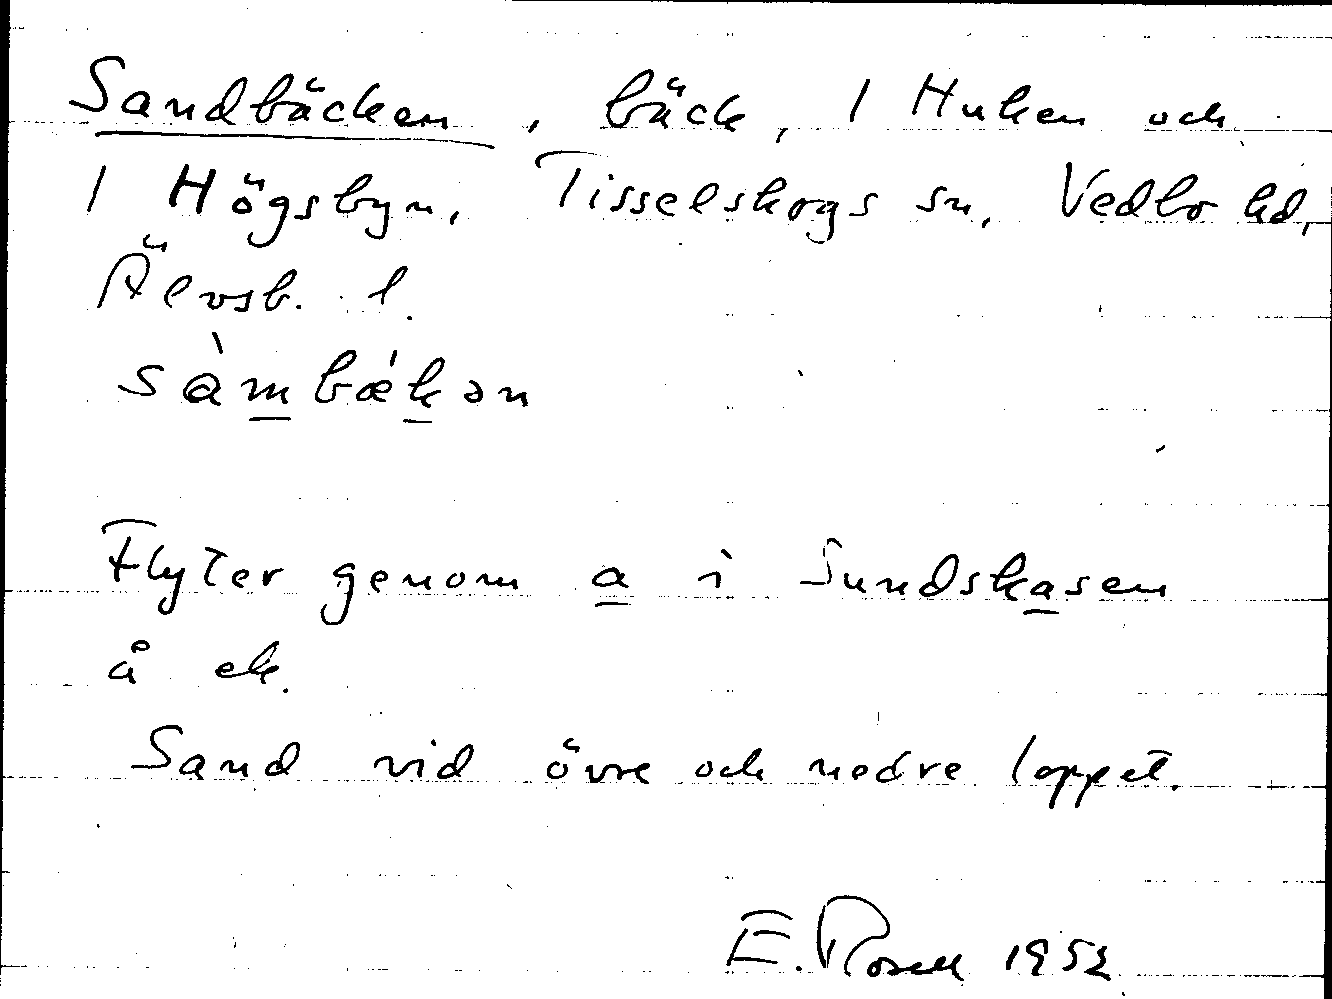 Sandbäcken, bäck, 1 Huken och
1 Högsbyn, Tisselskogs sn, Vedbo hd,
Älvsb. l.
sàmbǽkən
Flyter genom a i Sundskasen
å ek.
Sand vid övre och nedre loppet.
E. Rosell 1952